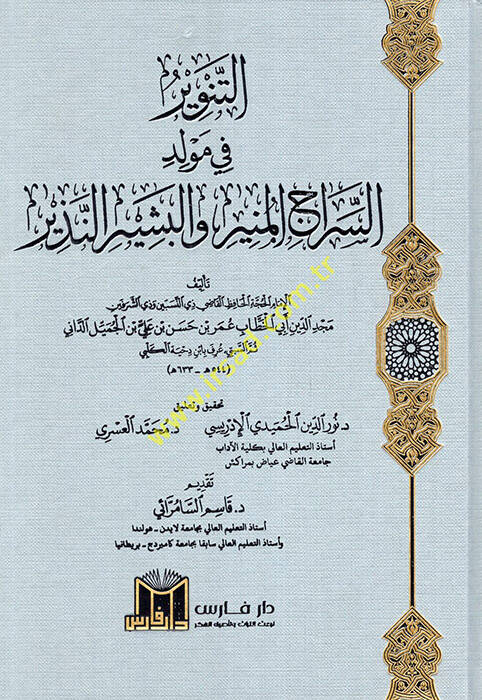 التَّنْوِيرُ
فِي مَوْلِدِ
السِّرَاجِ المُنِيرِ وَالبَشِيرِ النَّذِيرِ
تأليف
الإمام الحجة الحافظ القاضي ذي النسبين وذي الشرفين
مجد الدين أبي الخطاب عمر بن حسن بن علي بن الجميل الداني
ثم السبتي عرف بابن دحية الكلبي
(٥٤٤هـ - ٦٣٣هـ)
تحقيق وتعليق
د. نور الدين الحميدي الإدريسي د. محمد العسري
أستاذ التعليم العالي بكلية الآداب
جامعة القاضي عياض بمراكش
تقديم
د. قاسم السامرائي
أستاذ التعليم العالي بجامعة لايدن - هولندا
وأستاذ التعليم العالي سابقا بجامعة كامبردج - بريطانيا
دار فارس
دار فارس
لبعث التراث وتأصيل الفكر
www.irsad.com.tr